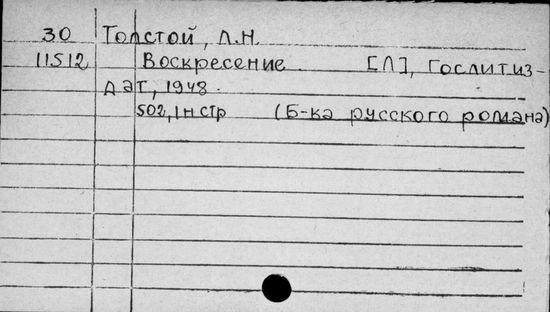 30 Толстой, Л.Н.
11512 Воскресение [Л], Гослитиз-
дат, 1948.
502, 1н стр (Б-ка русского романа)